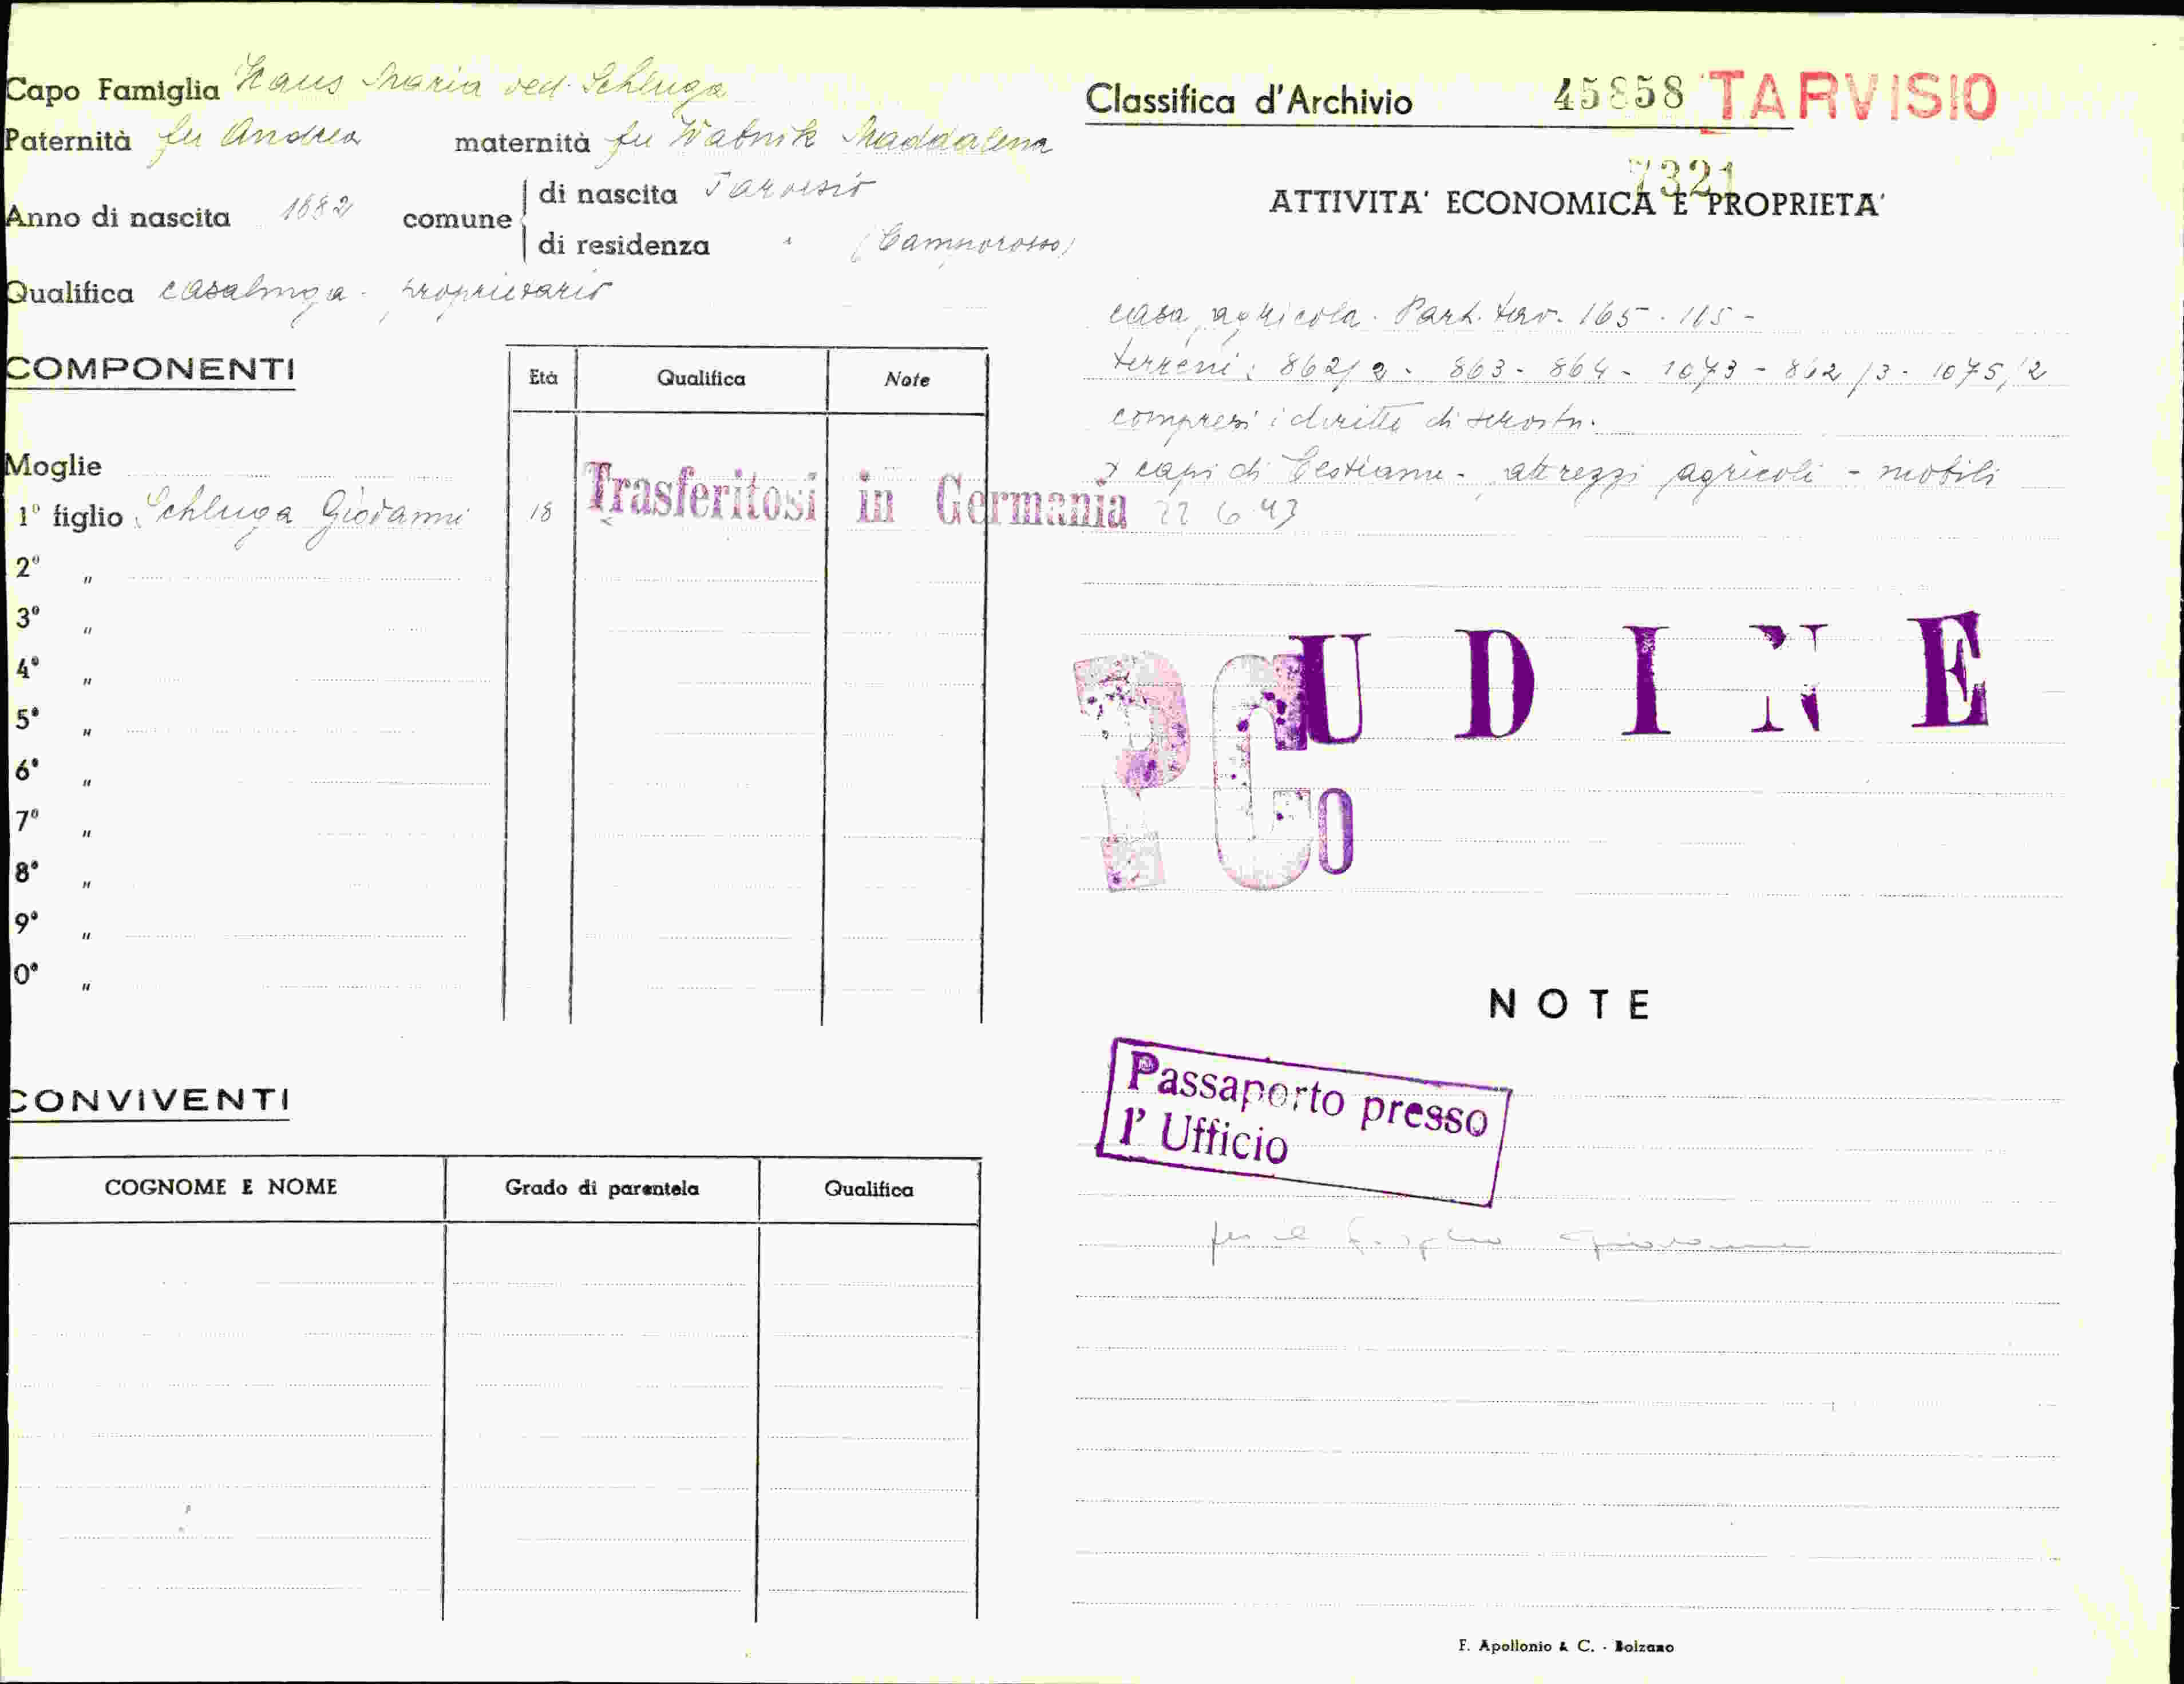 Capo Famiglia Kaus Maria ved. Schluga
Paternità fu Andrea maternità fu Watnik Maddalena
Anno di nascita 1882 comune di nascita Tarvisio
di residenza " (Camporosso)
Qualifica casalinga - proprietario
COMPONENTI
Età Qualifica Note
Moglie
1º figlio Schluga Giovanni 18 Trasferitosi in Germania 22 6.43
2º "
3º "
4º "
5º "
6º "
7º "
8º "
9º "
0º "
CONVIVENTI
COGNOME E NOME Grado di parentela Qualifica
Classifica d'Archivio 45858 TARVISIO
7321
ATTIVITA' ECONOMICA E PROPRIETA'
casa agricola. Part. tav. 165 - 115 -
terreni: 862/2 - 863 - 864 - 1073 - 862/3 - 1075/2
compresi i diritti di
capi di bestiame - attrezzi agricoli - mobili
UDINE
PC0
NOTE
Passaporto presso
l'Ufficio
per il figlio Giovanni
F. Apollonio & C. - Bolzano